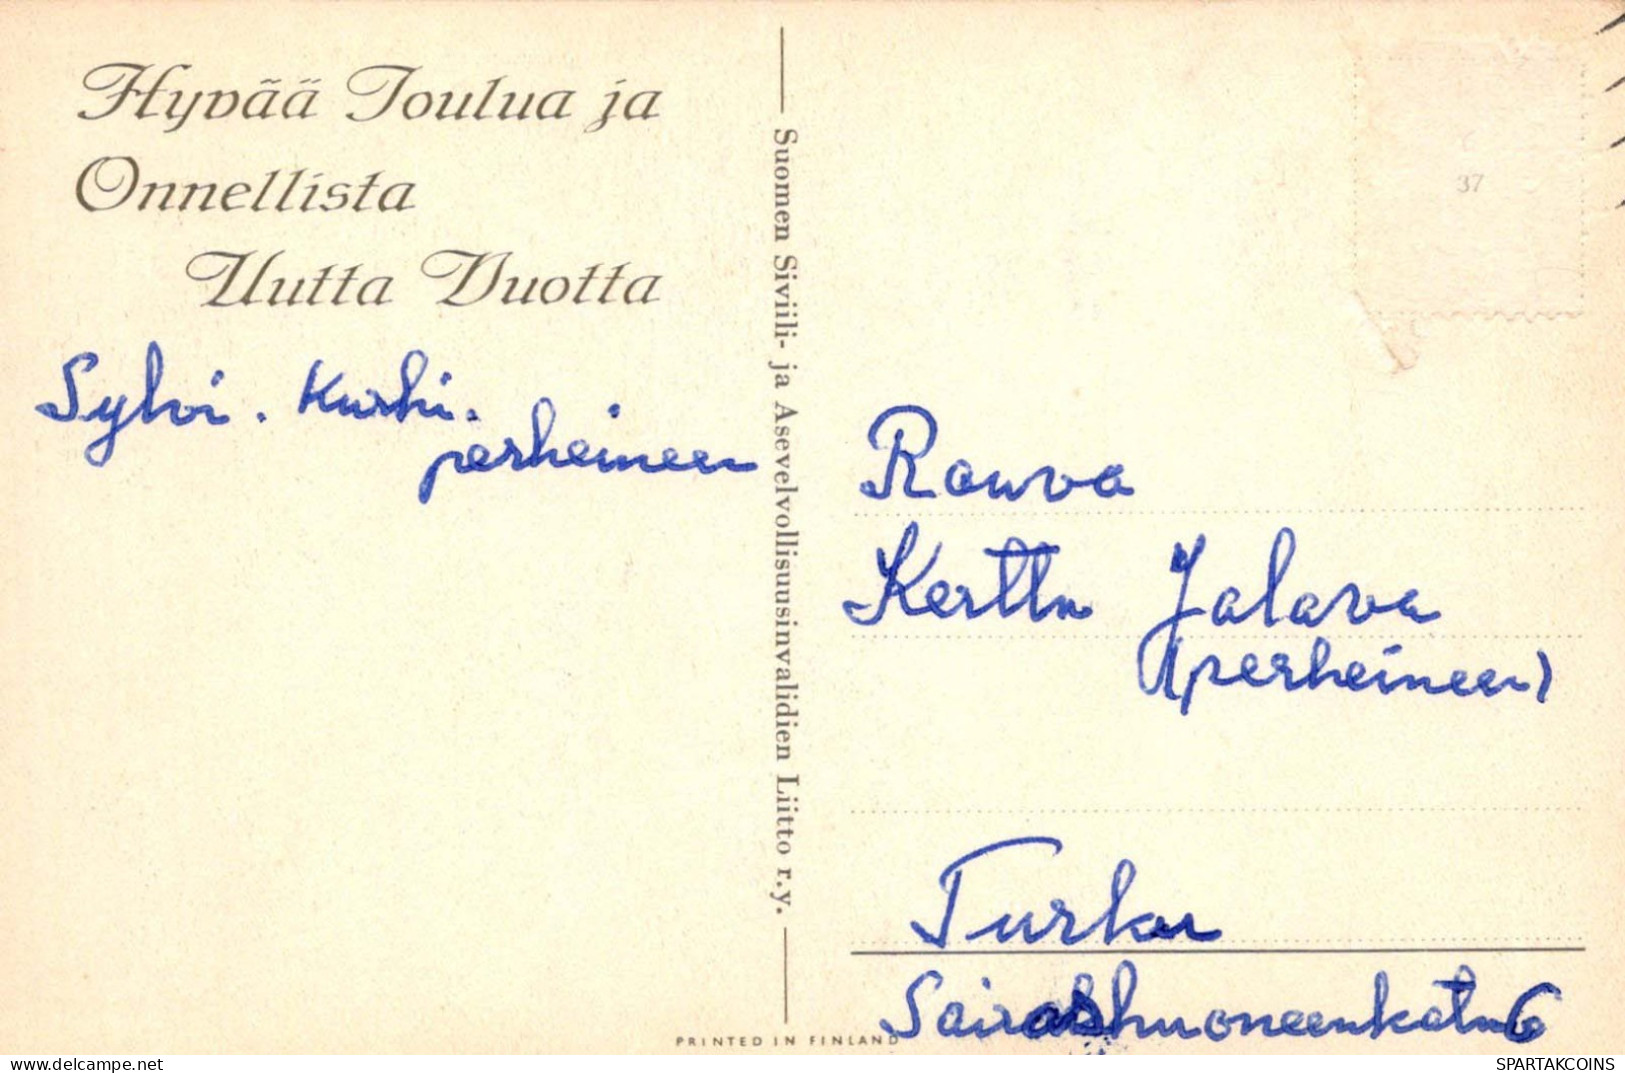 Hyvää Joulua ja
Onnellista
Uutta Vuotta
Sylvi. Kurki.
perheineen
Suomen Siviili- ja Asevelvollisuusinvalidien Liitto r.y.
37
Rouva
Kerttu Jalava
(perheineen)
Turku
Sairashuoneenkatu 6
PRINTED IN FINLAND
delcampe.net
SPARTAKCOINS